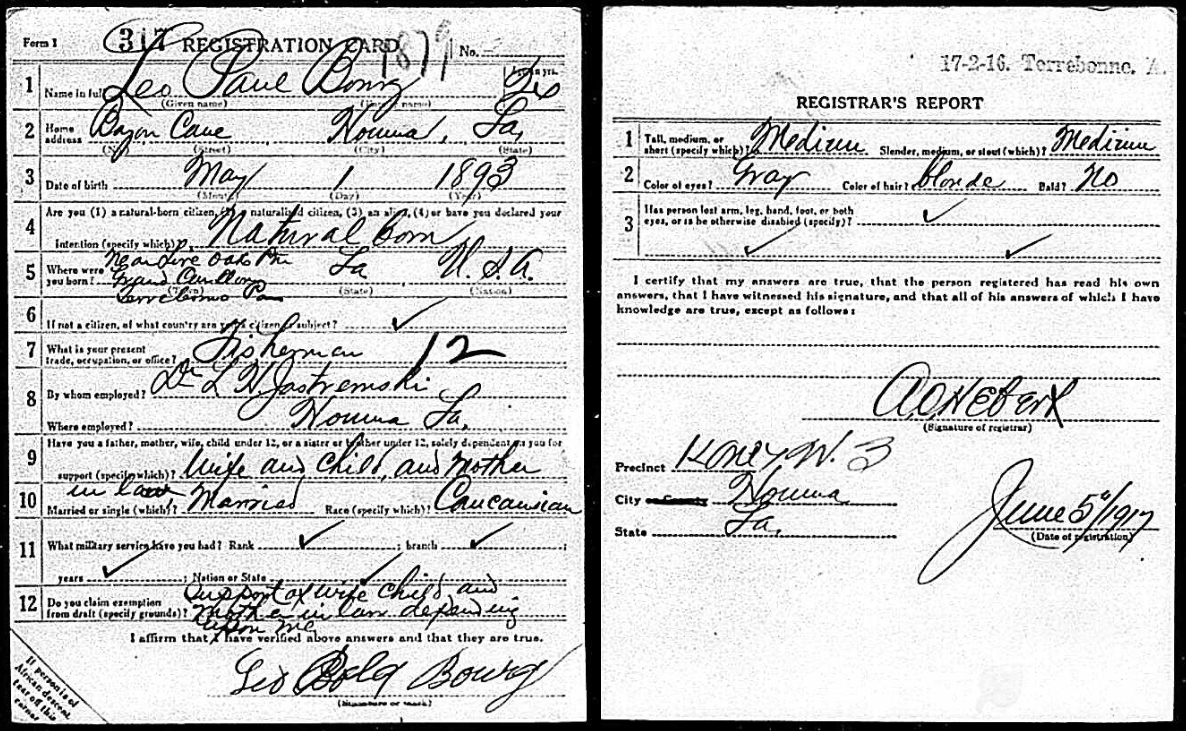 Form 1 317 REGISTRATION CARD 1879 No.
1 Name in full Leo Paul Bourg
(Given name) (Family name) Age, in yrs.
2 Home address Bayou Cane Houma, La,
(No.) (Street) (City) (State)
3 Date of birth May 1 1893
(Month) (Day) (Year)
4 Are you (1) a natural-born citizen, (2) a naturalized citizen, (3) an alien, (4) or have you declared your
intention (specify which)? Natural born
5 Where were you born? Near Live Oak Pn Grand Caillou Terrebonne Par La U.S.A.
(Town) (State) (Nation)
6 If not a citizen, of what country are you a citizen or subject? ✓
7 What is your present trade, occupation, or office? Fisherman 12
8 By whom employed? Dr L H Jastremski
Where employed? Houma La,
9 Have you a father, mother, wife, child under 12, or a sister or brother under 12, solely dependent on you for
support (specify which)? Wife and Child, and Mother
in law,
10 Married or single (which)? Married Race (specify which)? Caucausian
11 What military service have you had? Rank ✓ ; branch ✓ ;
years ✓ ; Nation or State ✓
12 Do you claim exemption from draft (specify grounds)? Support of wife child and
Mother in law depending
upon me
I affirm that I have verified above answers and that they are true.
Leo Bourg
(Signature or mark)
If person is of
African descent,
tear off this
corner
17-2-16. Terrebonne. A.
REGISTRAR'S REPORT
1 Tall, medium, or short (specify which)? Medium Slender, medium, or stout (which)? Medium
2 Color of eyes? Gray Color of hair? blonde Bald? No
3 Has person lost arm, leg, hand, foot, or both
eyes, or is he otherwise disabled (specify)? ✓
✓ ✓
I certify that my answers are true, that the person registered has read his own
answers, that I have witnessed his signature, and that all of his answers of which I have
knowledge are true, except as follows:
A O Hebert
(Signature of registrar)
Precinct 3
City or County Houma
State La,
June 5"/1917
(Date of registration)